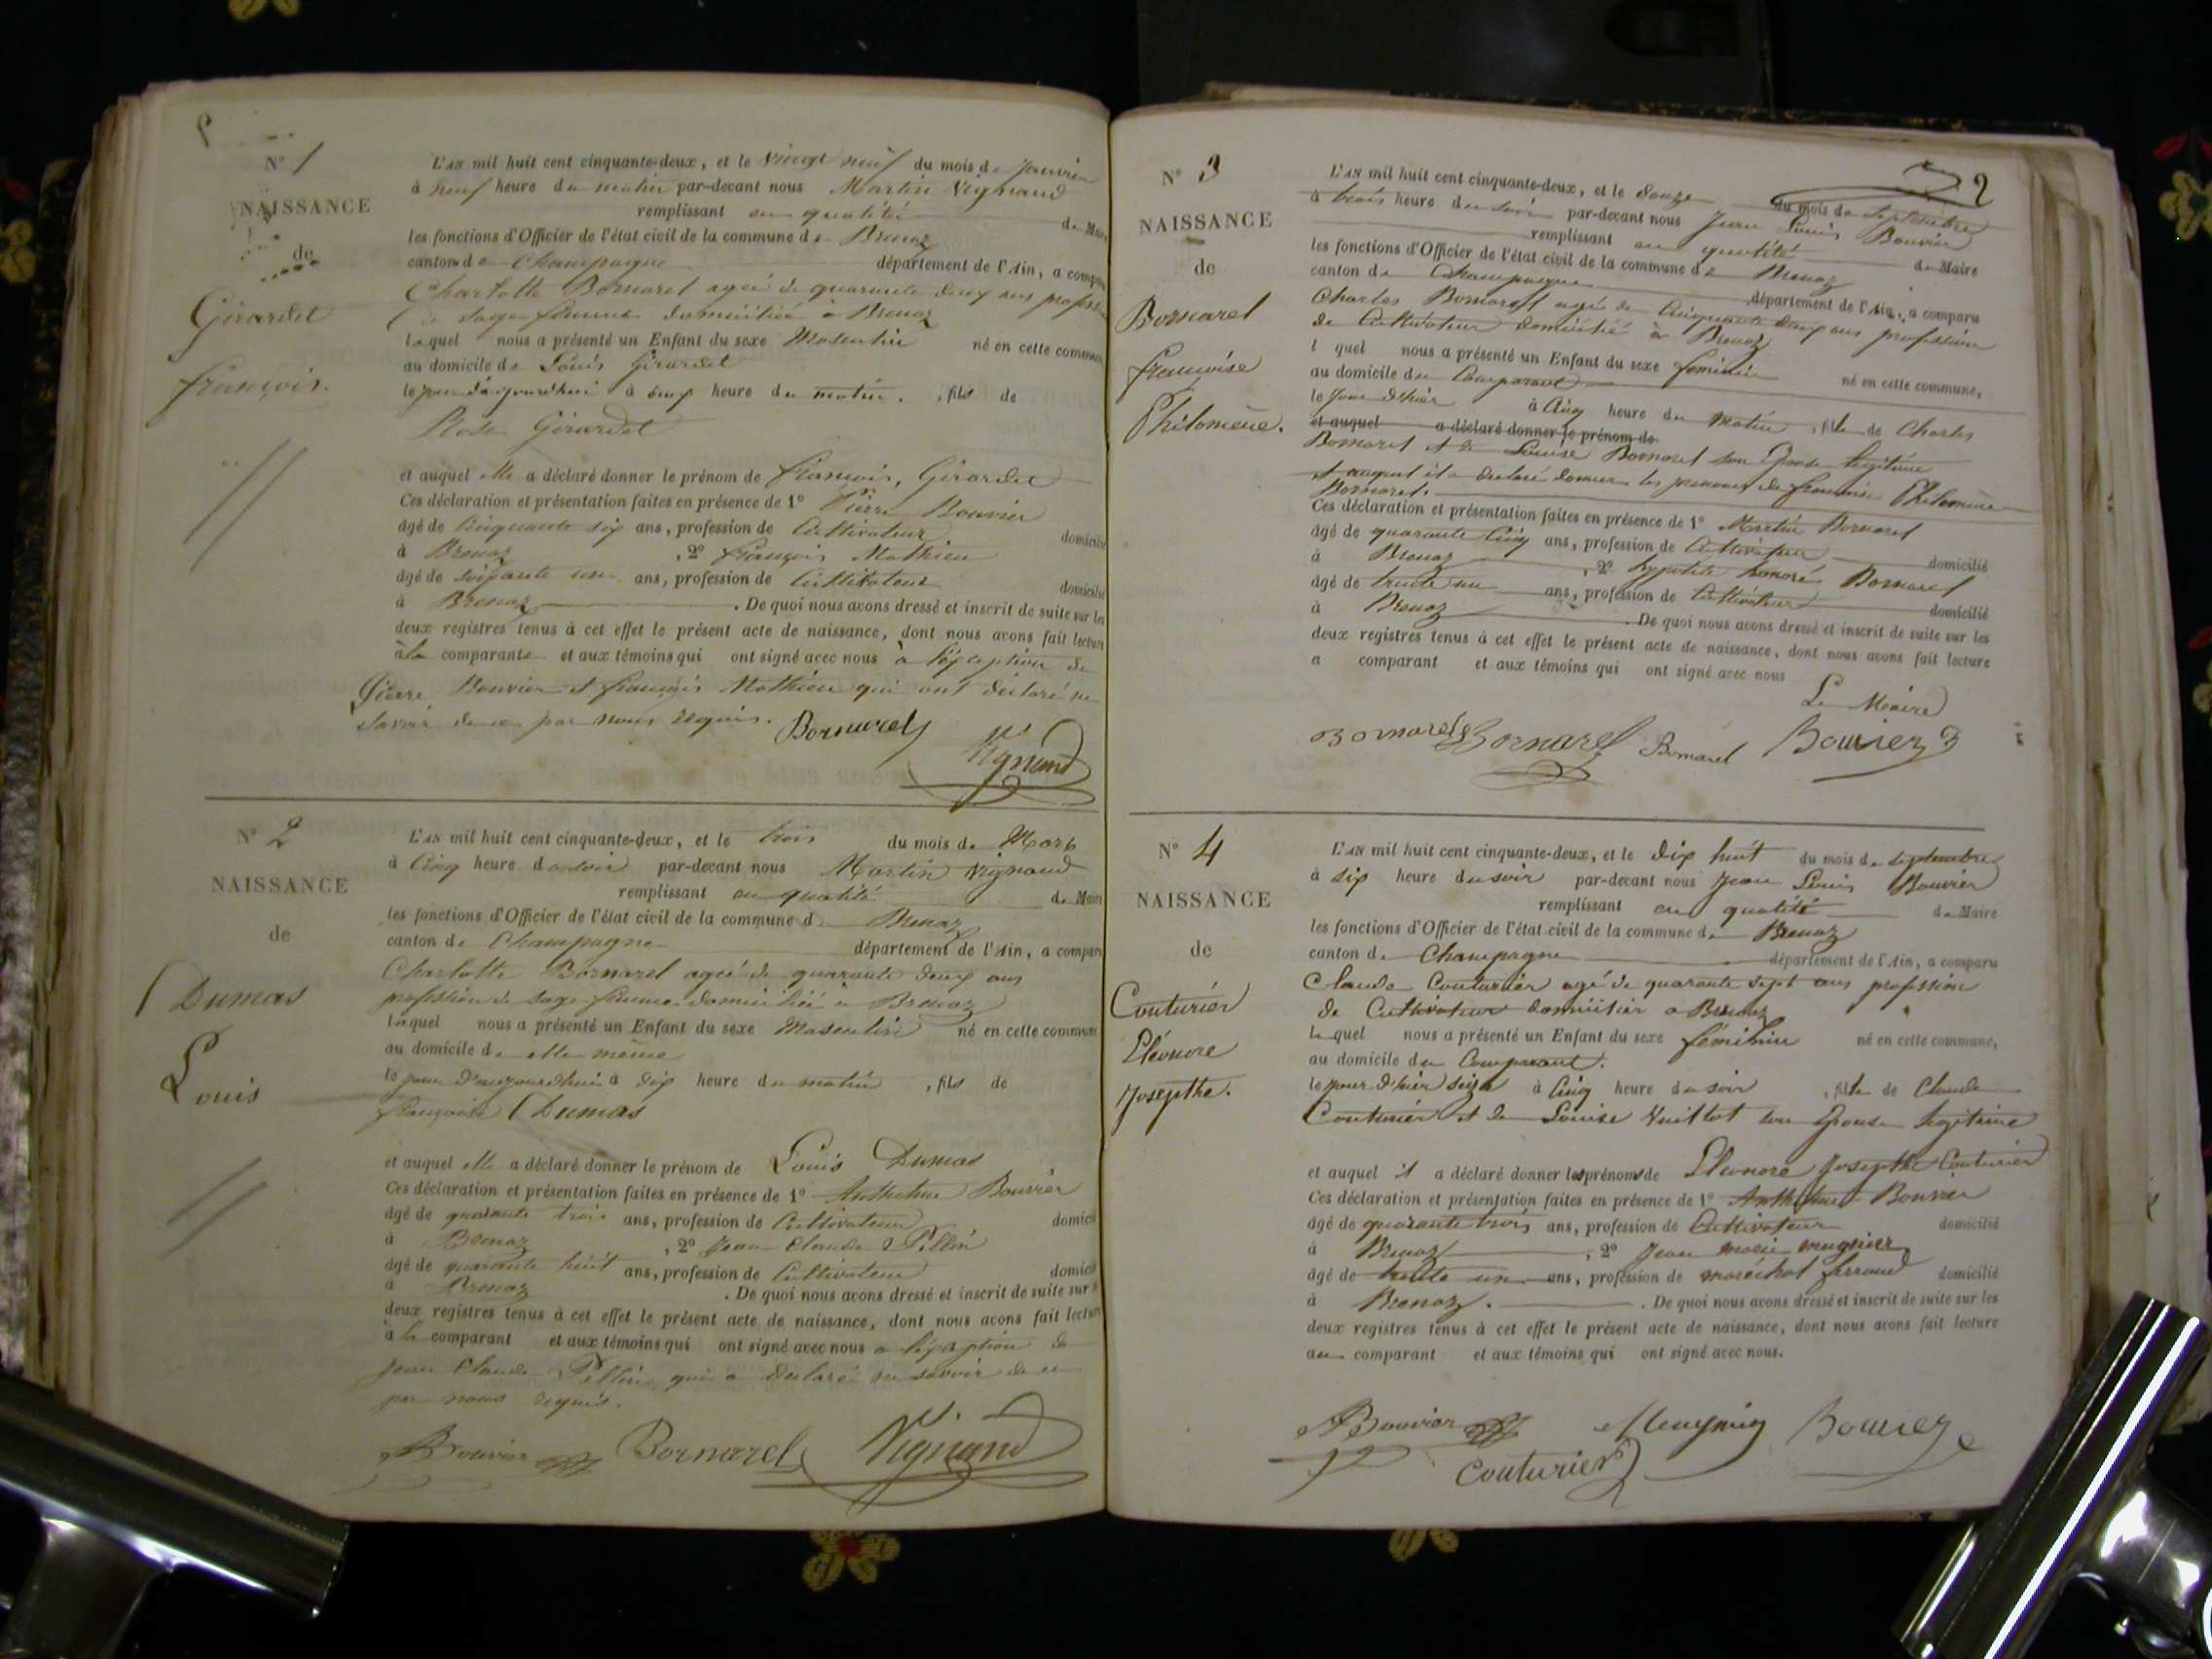 N° 1
NAISSANCE
de
Girardet
françois.
L'AN mil huit cent cinquante-deux, et le vingt neuf du mois de Janvier
à neuf heure du matin par-devant nous Martin Vignaud
remplissant en qualité de Maire
les fonctions d'Officier de l'état civil de la commune de Brenaz
canton de Champagne département de l'Ain, a comparu
Charlotte Bornarel agée de quarante deux ans profession
de sage femme domiciliée à Brenaz
laquel nous a présenté un Enfant du sexe Masculin né en cette commune
au domicile de Louis Girardet
le jour d'aujourdhui à deux heure du matin. , fils de
Rose Girardet
et auquel elle a déclaré donner le prénom de françois, Girardet
Ces déclaration et présentation faites en présence de 1° Pierre Bouvier
âgé de Cinquante six ans, profession de Cultivateur domicilié
à Brenaz , 2° françois Mathieu
âgé de soixante un ans, profession de Cultivateur domicilié
à Brenaz . De quoi nous avons dressé et inscrit de suite sur les
deux registres tenus à cet effet le présent acte de naissance, dont nous avons fait lecture
à la comparante et aux témoins qui ont signé avec nous à l'éxception de
Pierre Bouvier et françois Mathieu qui ont déclaré ne
savoir de ce par nous requis. Bornarel
Vignand
N° 2
NAISSANCE
de
Dumas
Louis
L'AN mil huit cent cinquante-deux, et le trois du mois de Mars
à Cinq heure du soir par-devant nous Martin Vignaud
remplissant en qualité de Maire
les fonctions d'Officier de l'état civil de la commune de Brenaz
canton de Champagne département de l'Ain, a comparu
Charlotte Bornarel agée de quarante deux ans
profession de sage femme domiciliée à Brenaz
laquel nous a présenté un Enfant du sexe Masculin né en cette commune
au domicile de elle même
le jour d'aujourdhui à dix heure du matin , fils de
françoise Dumas
et auquel elle a déclaré donner le prénom de Louis Dumas
Ces déclaration et présentation faites en présence de 1° Anthelme Bouvier
âgé de quarante trois ans, profession de Cultivateur domicilié
à Brenaz , 2° Jean Claude Pillin
âgé de quarante huit ans, profession de Cultivateur domicilié
à Brenaz . De quoi nous avons dressé et inscrit de suite sur
deux registres tenus à cet effet le présent acte de naissance, dont nous avons fait lecture
à la comparant et aux témoins qui ont signé avec nous a l'éxception de
Jean Claude Pillin qui a déclaré ne savoir de ce
par nous requis.
Bouvier Bornarel Vignand
2
N° 3
NAISSANCE
de
Bornarel
françoise
Philomène.
L'AN mil huit cent cinquante-deux, et le douze du mois de septembre
à trois heure du soir par-devant nous Jean Louis Bouvier
remplissant en qualité de Maire
les fonctions d'Officier de l'état civil de la commune de Brenaz
canton de Champagne département de l'Ain, a comparu
Charles Bornarel agé de Cinquante deux ans profession
de Cultivateur domicilié à Brenaz
l quel nous a présenté un Enfant du sexe féminin né en cette commune,
au domicile du Comparant
le Jour d'hier à Cinq heure du matin , fille de Charles
et auquel a déclaré donner le prénom de
Bornarel et de Louise Bornarel son Epouse légitime
et auquel il a déclaré donner les prénoms de françoise Philomène
Bornarel.
Ces déclaration et présentation faites en présence de 1° Martin Bornarel
âgé de quarante Cinq ans, profession de Cultivateur domicilié
à Brenaz , 2° hypolite honoré Bornarel
âgé de trente un ans, profession de Cultivateur domicilié
à Brenaz . De quoi nous avons dressé et inscrit de suite sur les
deux registres tenus à cet effet le présent acte de naissance, dont nous avons fait lecture
a comparant et aux témoins qui ont signé avec nous
Le Maire
Bornarel Bornarel Bornarel Bouvier
N° 4
NAISSANCE
de
Couturier
Eléonore
Josepthe.
L'AN mil huit cent cinquante-deux, et le dix huit du mois de septembre
à six heure du soir par-devant nous Jean Louis Bouvier
remplissant en qualité de Maire
les fonctions d'Officier de l'état civil de la commune de Brenaz
canton de Champagne département de l'Ain, a comparu
Claude Couturier agé de quarante sept ans profession
de Cultivateur domicilier a Brenaz
le quel nous a présenté un Enfant du sexe féminin né en cette commune,
au domicile du Comparant.
le jour d'hier seize à Cinq heure du soir , fille de Claude
Couturier et de Louise Vuittot son Epouse légitime
et auquel il a déclaré donner les prénoms de Eléonore Josepthe Couturier
Ces déclaration et présentation faites en présence de 1° Anthelme Bouvier
âgé de quarante trois ans, profession de Cultivateur domicilié
à Brenaz , 2° Jean marie meugnier
âgé de trente un ans, profession de maréchal ferrand domicilié
à Brenaz. . De quoi nous avons dressé et inscrit de suite sur les
deux registres tenus à cet effet le présent acte de naissance, dont nous avons fait lecture
au comparant et aux témoins qui ont signé avec nous.
Bouvier Meugnier Bouvier
Couturier